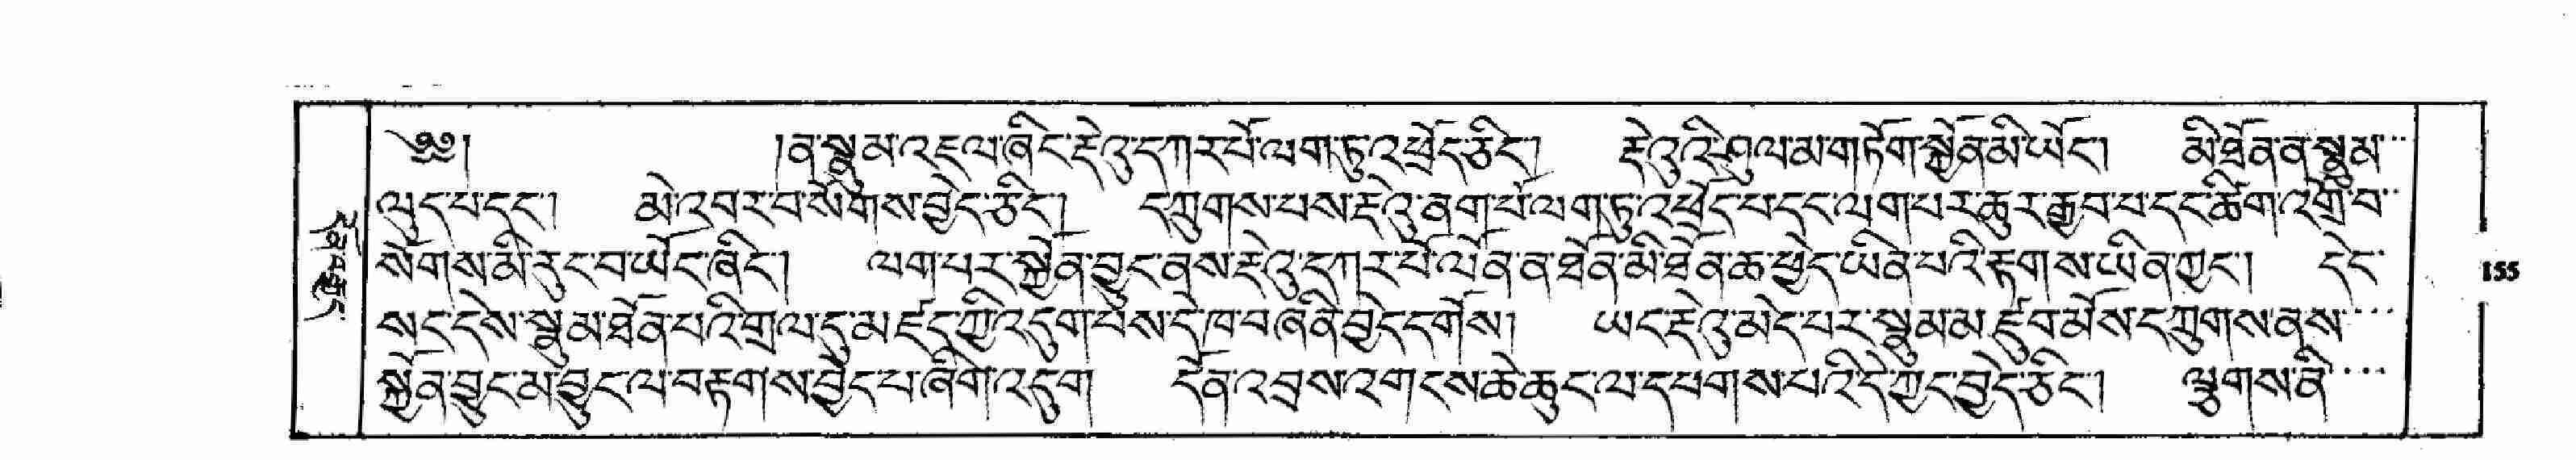 ༄༅། །ན་སྣུམ་འཇལ་ཞིང་རྡེའུ་དཀར་པོ་ལག་ཏུ་འཕྲོད་ཅིང་། རྡེའུ་འི་ཤུལ་མ་གཏོག་སྐྱོན་མི་ཡོང་། མི་ཐོན་ན་སྣུམ་
ལུད་པ་དང་། མེ་འབར་བ་སོགས་བྱེད་ཅིང་། དཀྲུགས་པས་རྡེའུ་ནག་པོ་ལག་ཏུ་འཕྲོད་པ་དང་ལག་པར་ཆུར་རྒྱབ་པ་དང་ཚིག་འགྲོ་བ་
སོགས་མི་རུང་བ་ཡོང་ཞིང་། ལག་པར་སྐྱོན་བྱུང་ནས་རྡེའུ་དཀར་པོ་ལོན་ན་ཐོན་མི་ཐོན་ཆ་ཕྱེད་ཡིན་པའི་རྟགས་ཡིན་ཀྱང་། དེང་
སང་དེས་སྣུམ་ཐོན་པའི་གྲལ་དུ་མཛད་ཀྱི་འདུག་པས་དེ་ཁ་བཞིན་བྱེད་དགོས། ཡང་རྡེའུ་མེད་པར་སྣུམ་མཛུབ་མོས་དཀྲུགས་ནས་
སྐྱོན་བྱུང་མ་བྱུང་ལ་བརྟགས་བྱེད་པ་ཞིག་འདུག དོན་འབྲས་འགངས་ཆེ་ཆུང་ལ་དཔགས་པའི་དེ་ཀྱང་བྱེད་ཅིང་། ལྕགས་ནི་
155